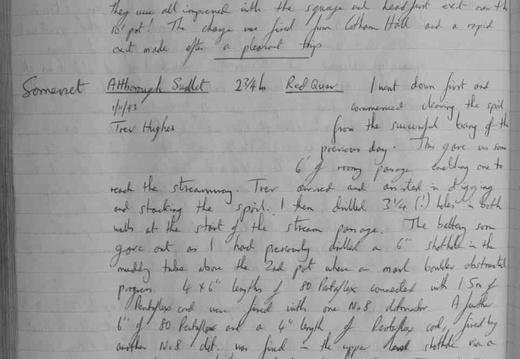 they were all impressed with the squeeze and headfirst exit over the
15' pot! The charge was fired from Cotham Hall and a rapid
exit made after a pleasant trip.
Somerset Attborough Swallet 2 3/4 h Red Quar I went down first and
1/11/93 commenced clearing the spoil
Trev Hughes from the successful bang of the
previous day. This gave us some
6' of roomy passage enabling one to
reach the streamway. Trev arrived and assisted in digging
and stacking the spoil. I then drilled 3 1/4 (!) holes in both
walls at the start of the stream passage. The battery soon
gave out as I had previously drilled a 6" shothole in the
muddy tube above the 2nd pot where a small boulder obstructed
progress. 4 x 6" lengths of 80 Pentaflex connected with 1.5m of
Pentaflex cord were fired with one No 8 detonator. A further
6" of 80 Pentaflex and a 4" length of Pentaflex cord, fired by
another No 8 det. was fired in the upper level shothole via a